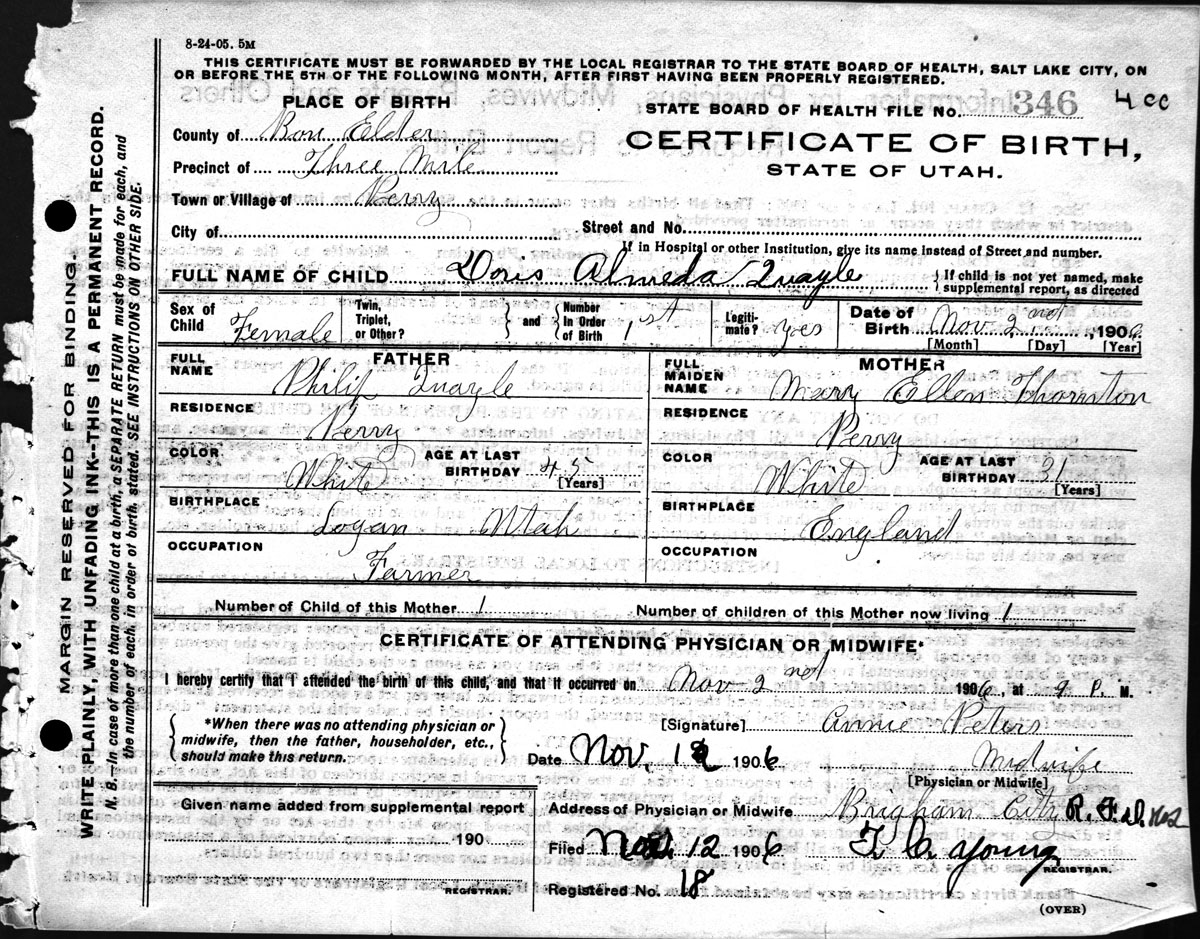 8-24-05. 5M
THIS CERTIFICATE MUST BE FORWARDED BY THE LOCAL REGISTRAR TO THE STATE BOARD OF HEALTH, SALT LAKE CITY, ON
OR BEFORE THE 5TH OF THE FOLLOWING MONTH, AFTER FIRST HAVING BEEN PROPERLY REGISTERED.
PLACE OF BIRTH
STATE BOARD OF HEALTH FILE No. 346 4 cc
County of Box Elder
CERTIFICATE OF BIRTH,
Precinct of Three Mile
STATE OF UTAH.
Town or Village of Perry
City of Street and No.
If in Hospital or other Institution, give its name instead of Street and number.
FULL NAME OF CHILD Doris Almeda Quayle
If child is not yet named, make
supplemental report, as directed
Sex of Child Female
Twin, Triplet, or Other?
and Number In Order of Birth 1st
Legiti- mate? yes
Date of Birth Nov. 2nd, 1906
[Month] [Day] [Year]
FATHER
FULL NAME Philip Quayle
RESIDENCE Perry
COLOR White AGE AT LAST BIRTHDAY 45 [Years]
BIRTHPLACE Logan Utah
OCCUPATION Farmer
MOTHER
FULL MAIDEN NAME Mary Ellen Thornton
RESIDENCE Perry
COLOR White AGE AT LAST BIRTHDAY 31 [Years]
BIRTHPLACE England
OCCUPATION
Number of Child of this Mother 1 Number of children of this Mother now living 1
CERTIFICATE OF ATTENDING PHYSICIAN OR MIDWIFE*
I hereby certify that I attended the birth of this child, and that it occurred on Nov 2nd 1906, at 9 P. M.
*When there was no attending physician or
midwife, then the father, householder, etc.,
should make this return.
[Signature] Annie Peters
Date Nov. 12 1906 Midwife
[Physician or Midwife]
Given name added from supplemental report
190
REGISTRAR.
Address of Physician or Midwife Brigham City R.F.D. No 2
Filed Nov. 12 1906 T. C. Young
REGISTRAR.
Registered No. 18
(OVER)
MARGIN RESERVED FOR BINDING.
WRITE PLAINLY, WITH UNFADING INK--THIS IS A PERMANENT RECORD.
N. B.--In case of more than one child at a birth, a SEPARATE RETURN must be made for each, and
the number of each, in order of birth, stated. SEE INSTRUCTIONS ON OTHER SIDE.